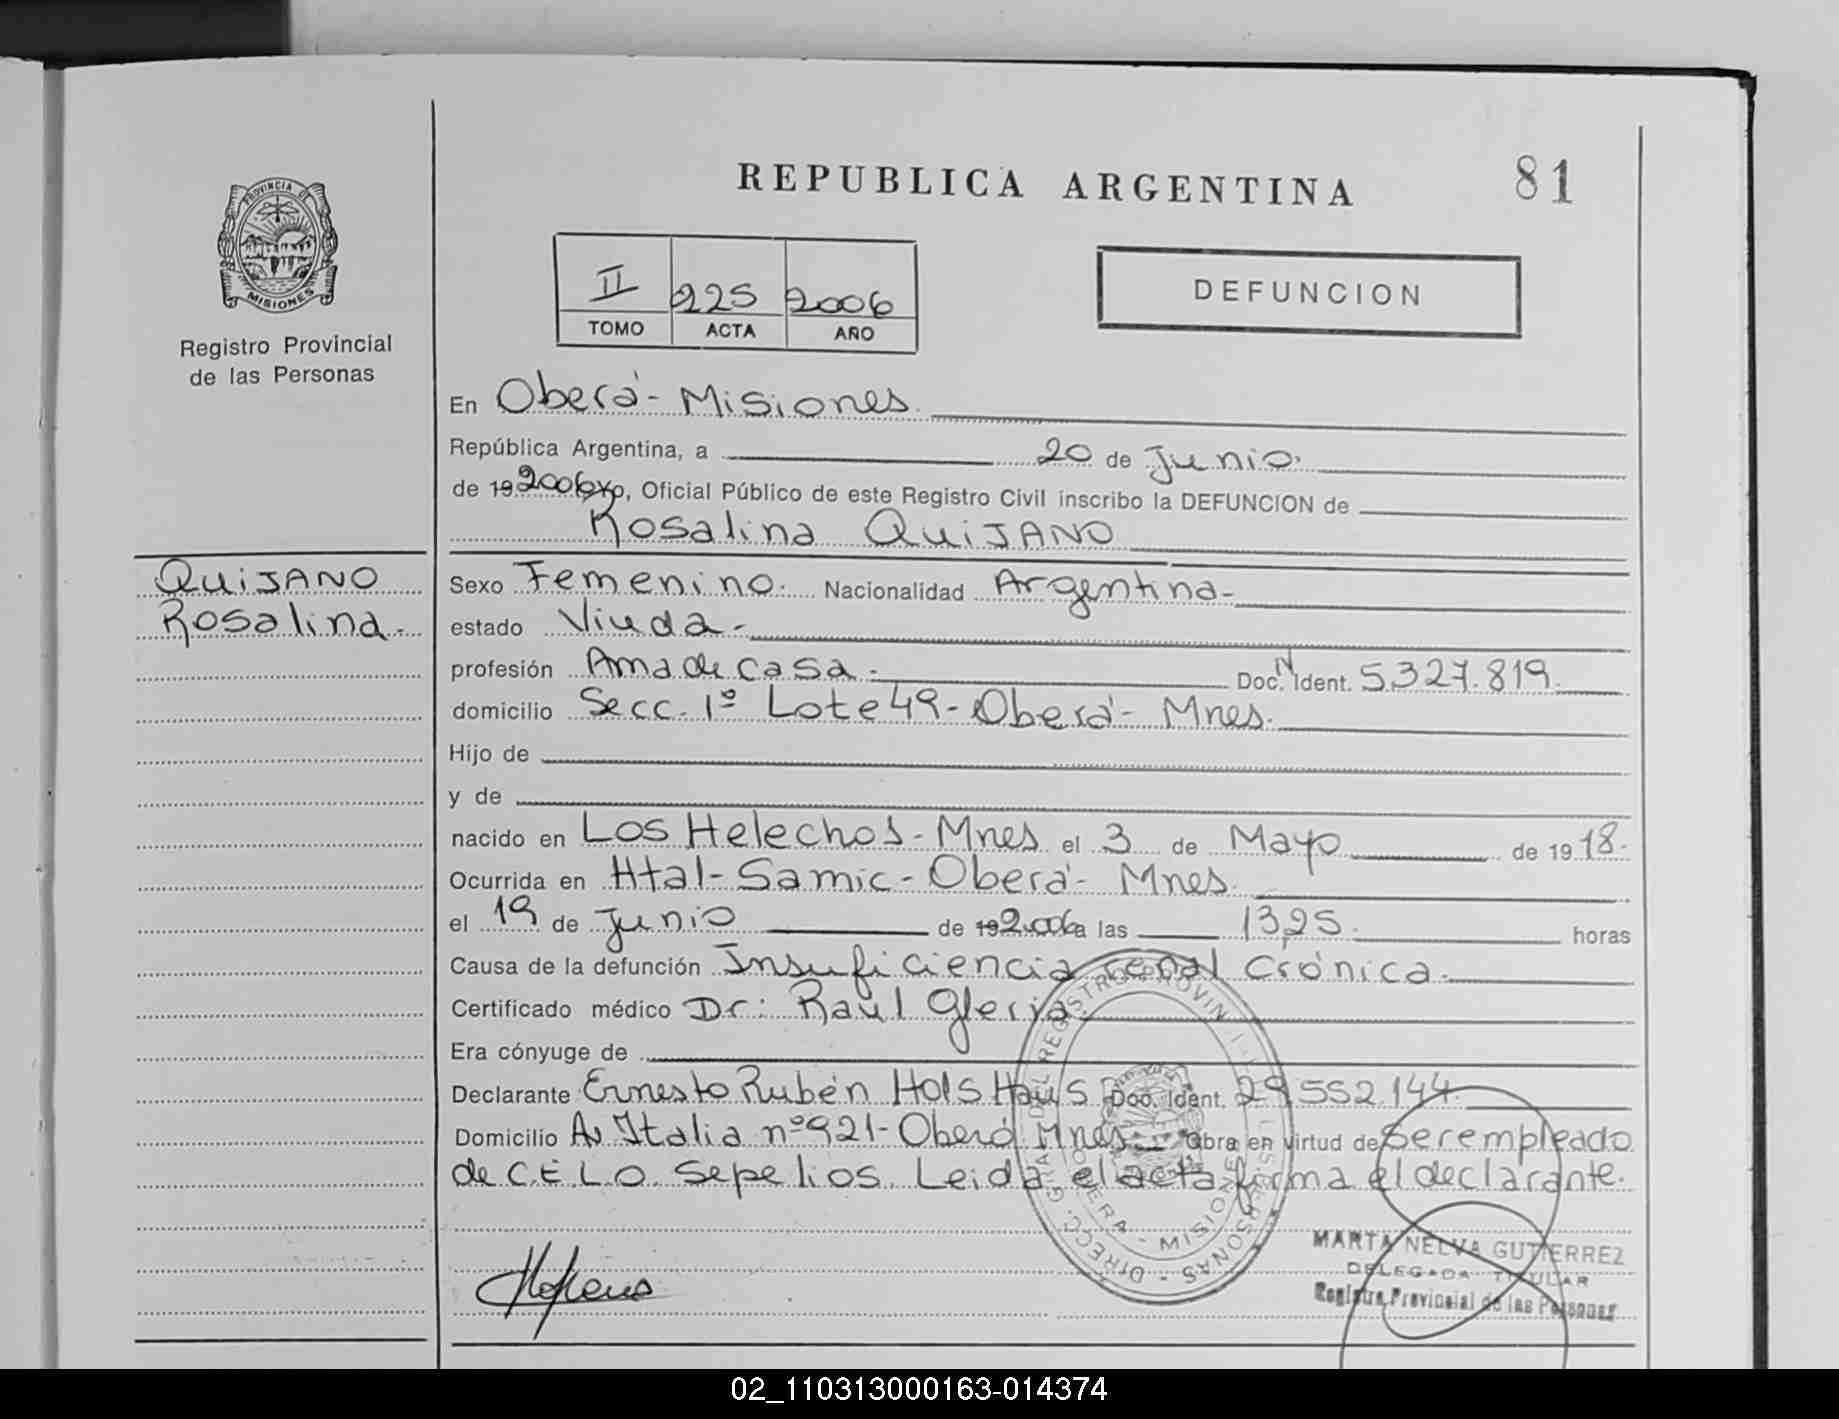 REPUBLICA ARGENTINA
81
PROVINCIA DE
MISIONES
Registro Provincial
de las Personas
II 225 2006
TOMO ACTA AÑO
DEFUNCION
En Oberá - Misiones
República Argentina, a 20 de Junio
de 19 2006 yo, Oficial Público de este Registro Civil inscribo la DEFUNCION de
Rosalina QUIJANO
QUIJANO
Rosalina.-
Sexo Femenino. Nacionalidad Argentina-
estado Viuda-
profesión Ama de casa- Doc. N Ident. 5.327.819.
domicilio Secc. 1º Lote 49- Oberá- Mnes.
Hijo de
y de
nacido en Los Helechos- Mnes el 3 de Mayo de 1918.
Ocurrida en Htal- Samic- Oberá- Mnes.
el 19 de Junio de 19 2006 a las 13,25. horas
Causa de la defunción Insuficiencia renal Crónica.
Certificado médico Dr: Raúl Gleria
Era cónyuge de
Declarante Ernesto Rubén Hols Haus Doc. Ident. 29.552.144
Domicilio Av Italia nº 921- Oberá Mnes Obra en virtud de ser empleado
de C.E.L.O. Sepelios. Leida el acta firma el declarante.
DIRECC. GRAL. DEL REGISTRO PROVIN PERSONAS
OBERA - MISIONES
MARTA NELVA GUTIERREZ
DELEGADA TITULAR
Registro Provincial de las Personas
02_110313000163-014374